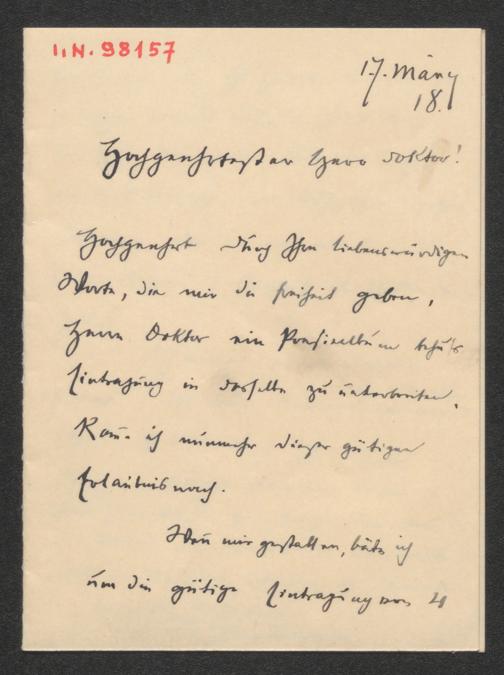 I.N. 98157
17. März
18.
Hochgeehrtester Herr Doktor!
Hochgeehrt durch Ihre liebenswürdigen
Worte, die mir die Freiheit geben,
Herrn Doktor ein Poesiealbum behufs
Eintragung in dasselbe zu unterbreiten,
Kom̄e ich nunmehr dieser gütigen
Erlaubnis nach.
Wen̄ mir gestatten, bäte ich
um die gütige Eintragung von 4